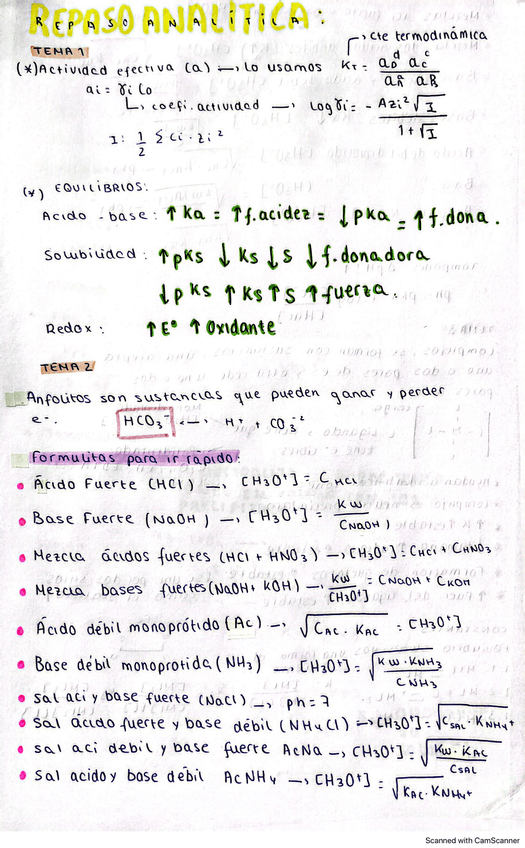 REPASO ANALÍTICA:
TEMA 1
cte termodinámica
(*) Actividad efectiva (a) → Lo usamos K_T = a_D^d a_C^c / a_A^a a_B
ai = γi Co
↳ coefi. actividad → Log γi = - Azi² √I / 1 + √I
I: 1/2 Σ Ci · zi²
(*) EQUILIBRIOS:
Acido - base: ↑ Ka = ↑ f. acidez = ↓ pKa = ↑ f. dona.
Solubilidad: ↑ pKs ↓ Ks ↓ S ↓ f. donadora
↓ pKs ↑ Ks ↑ S ↑ fuerza.
Redox: ↑ E° ↑ Oxidante
TEMA 2
Anfolitos son sustancias que pueden ganar y perder
e-. HCO₃⁻ ⟷ H⁺ + CO₃⁻²
Formulitas para ir rápido:
• Ácido Fuerte (HCl) → [H3O⁺] = C HCl
• Base Fuerte (NaOH) → [H3O⁺] = Kw / CNaOH
• Mezcla ácidos fuertes (HCl + HNO₃) → [H3O⁺] = CHCl + CHNO₃
• Mezcla bases fuertes (NaOH + KOH) → Kw / [H3O⁺] = CNaOH + CKOH
• Ácido débil monoprótido (Ac) → √CAC · KAC = [H3O⁺]
• Base débil monoprotida (NH₃) → [H3O⁺] = √Kw · KNH₃ / CNH₃
• Sal aci y base fuerte (NaCl) → ph = 7
• Sal ácido fuerte y base débil (NH₄Cl) → [H3O⁺] = √CSAL · KNH₄⁺
• Sal aci debil y base fuerte AcNa → [H3O⁺] = √Kw · KAC / CSAL
• Sal acido y base débil AcNH₄ → [H3O⁺] = √KAC · KNH₄⁺
Scanned with CamScanner